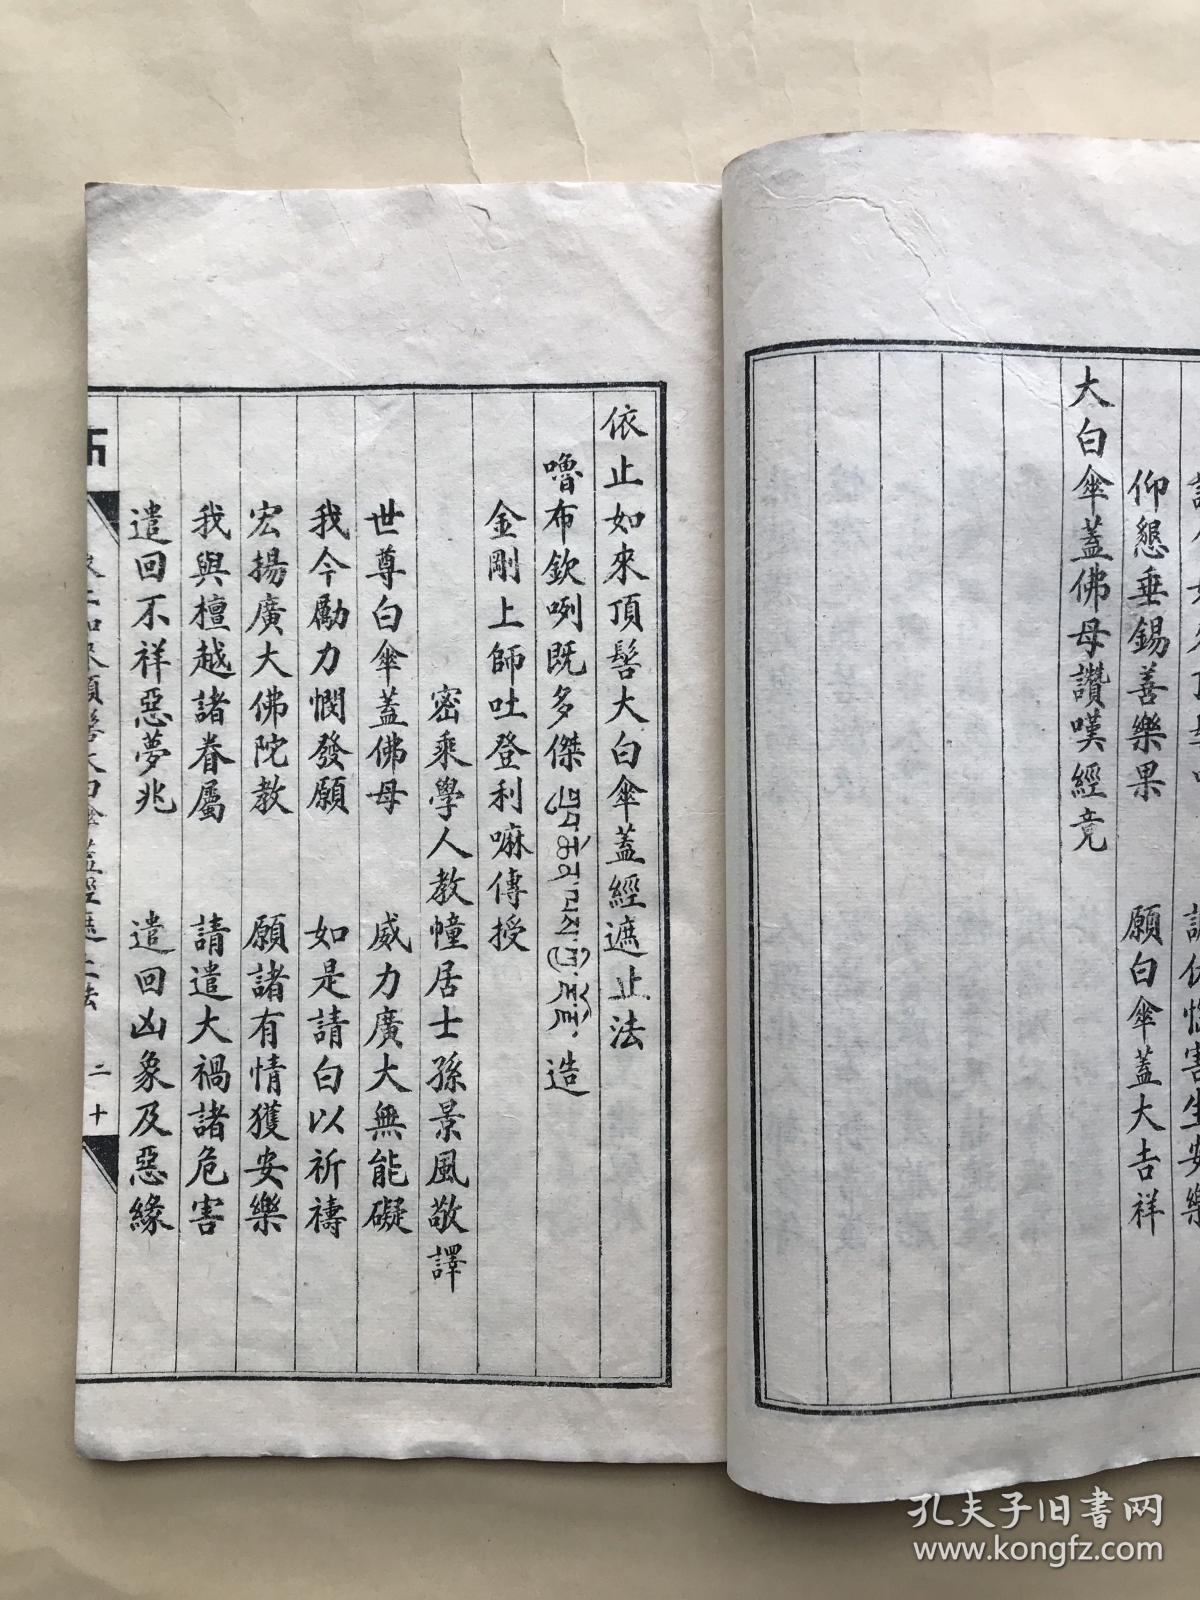 仰懇垂錫善樂果　願白傘蓋大吉祥
大白傘蓋佛母讚嘆經竟
依止如來頂髻大白傘蓋經遮止法
嚕布欽咧既多傑　造
金剛上師吐登利嘛傳授
密乘學人教幢居士孫景風敬譯
世尊白傘蓋佛母　威力廣大無能礙
我今勵力憫發願　如是請白以祈禱
宏揚廣大佛陀教　願諸有情獲安樂
我與檀越諸眷屬　請遣大禍諸危害
遣回不祥惡夢兆　遣回凶象及惡緣
二十
孔夫子旧书网
www.kongfz.com